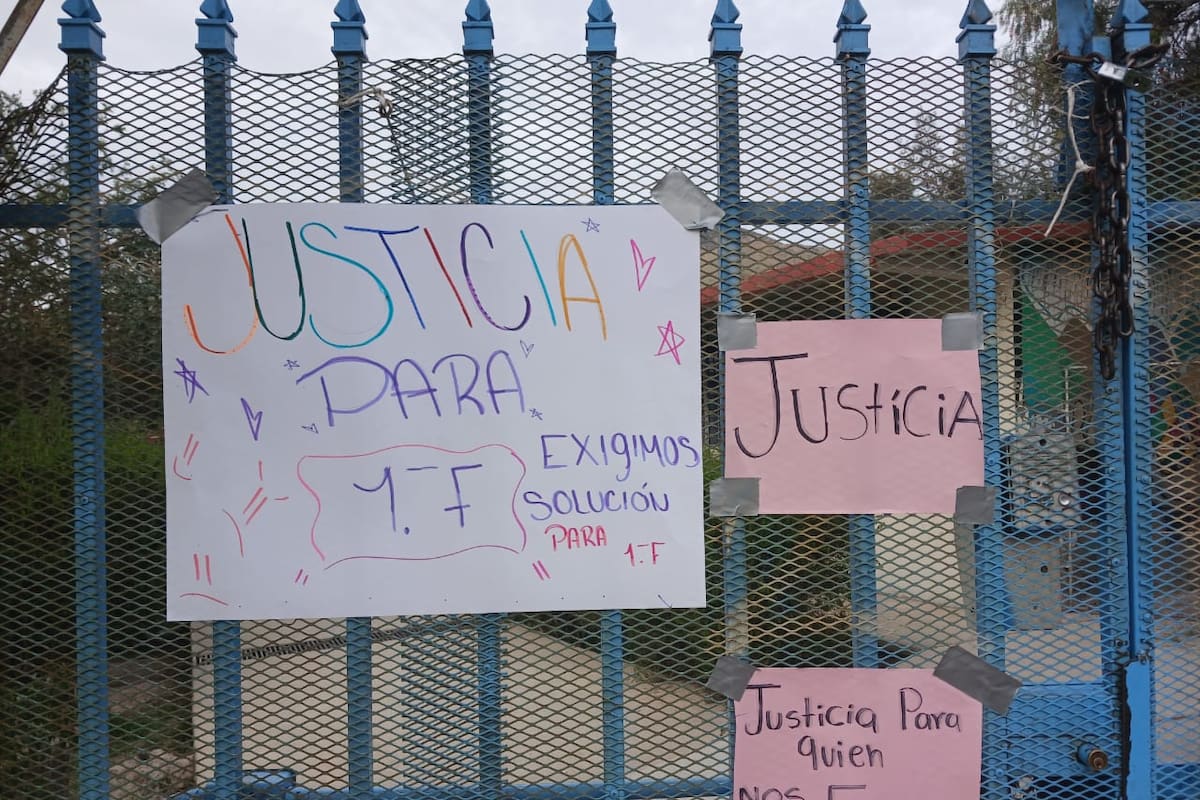 JUSTICIA
PARA
1.- F
EXIGIMOS
SOLUCIÓN
PARA
1.- F
JUSTÍCIA
Justicia Para
quien
NOS